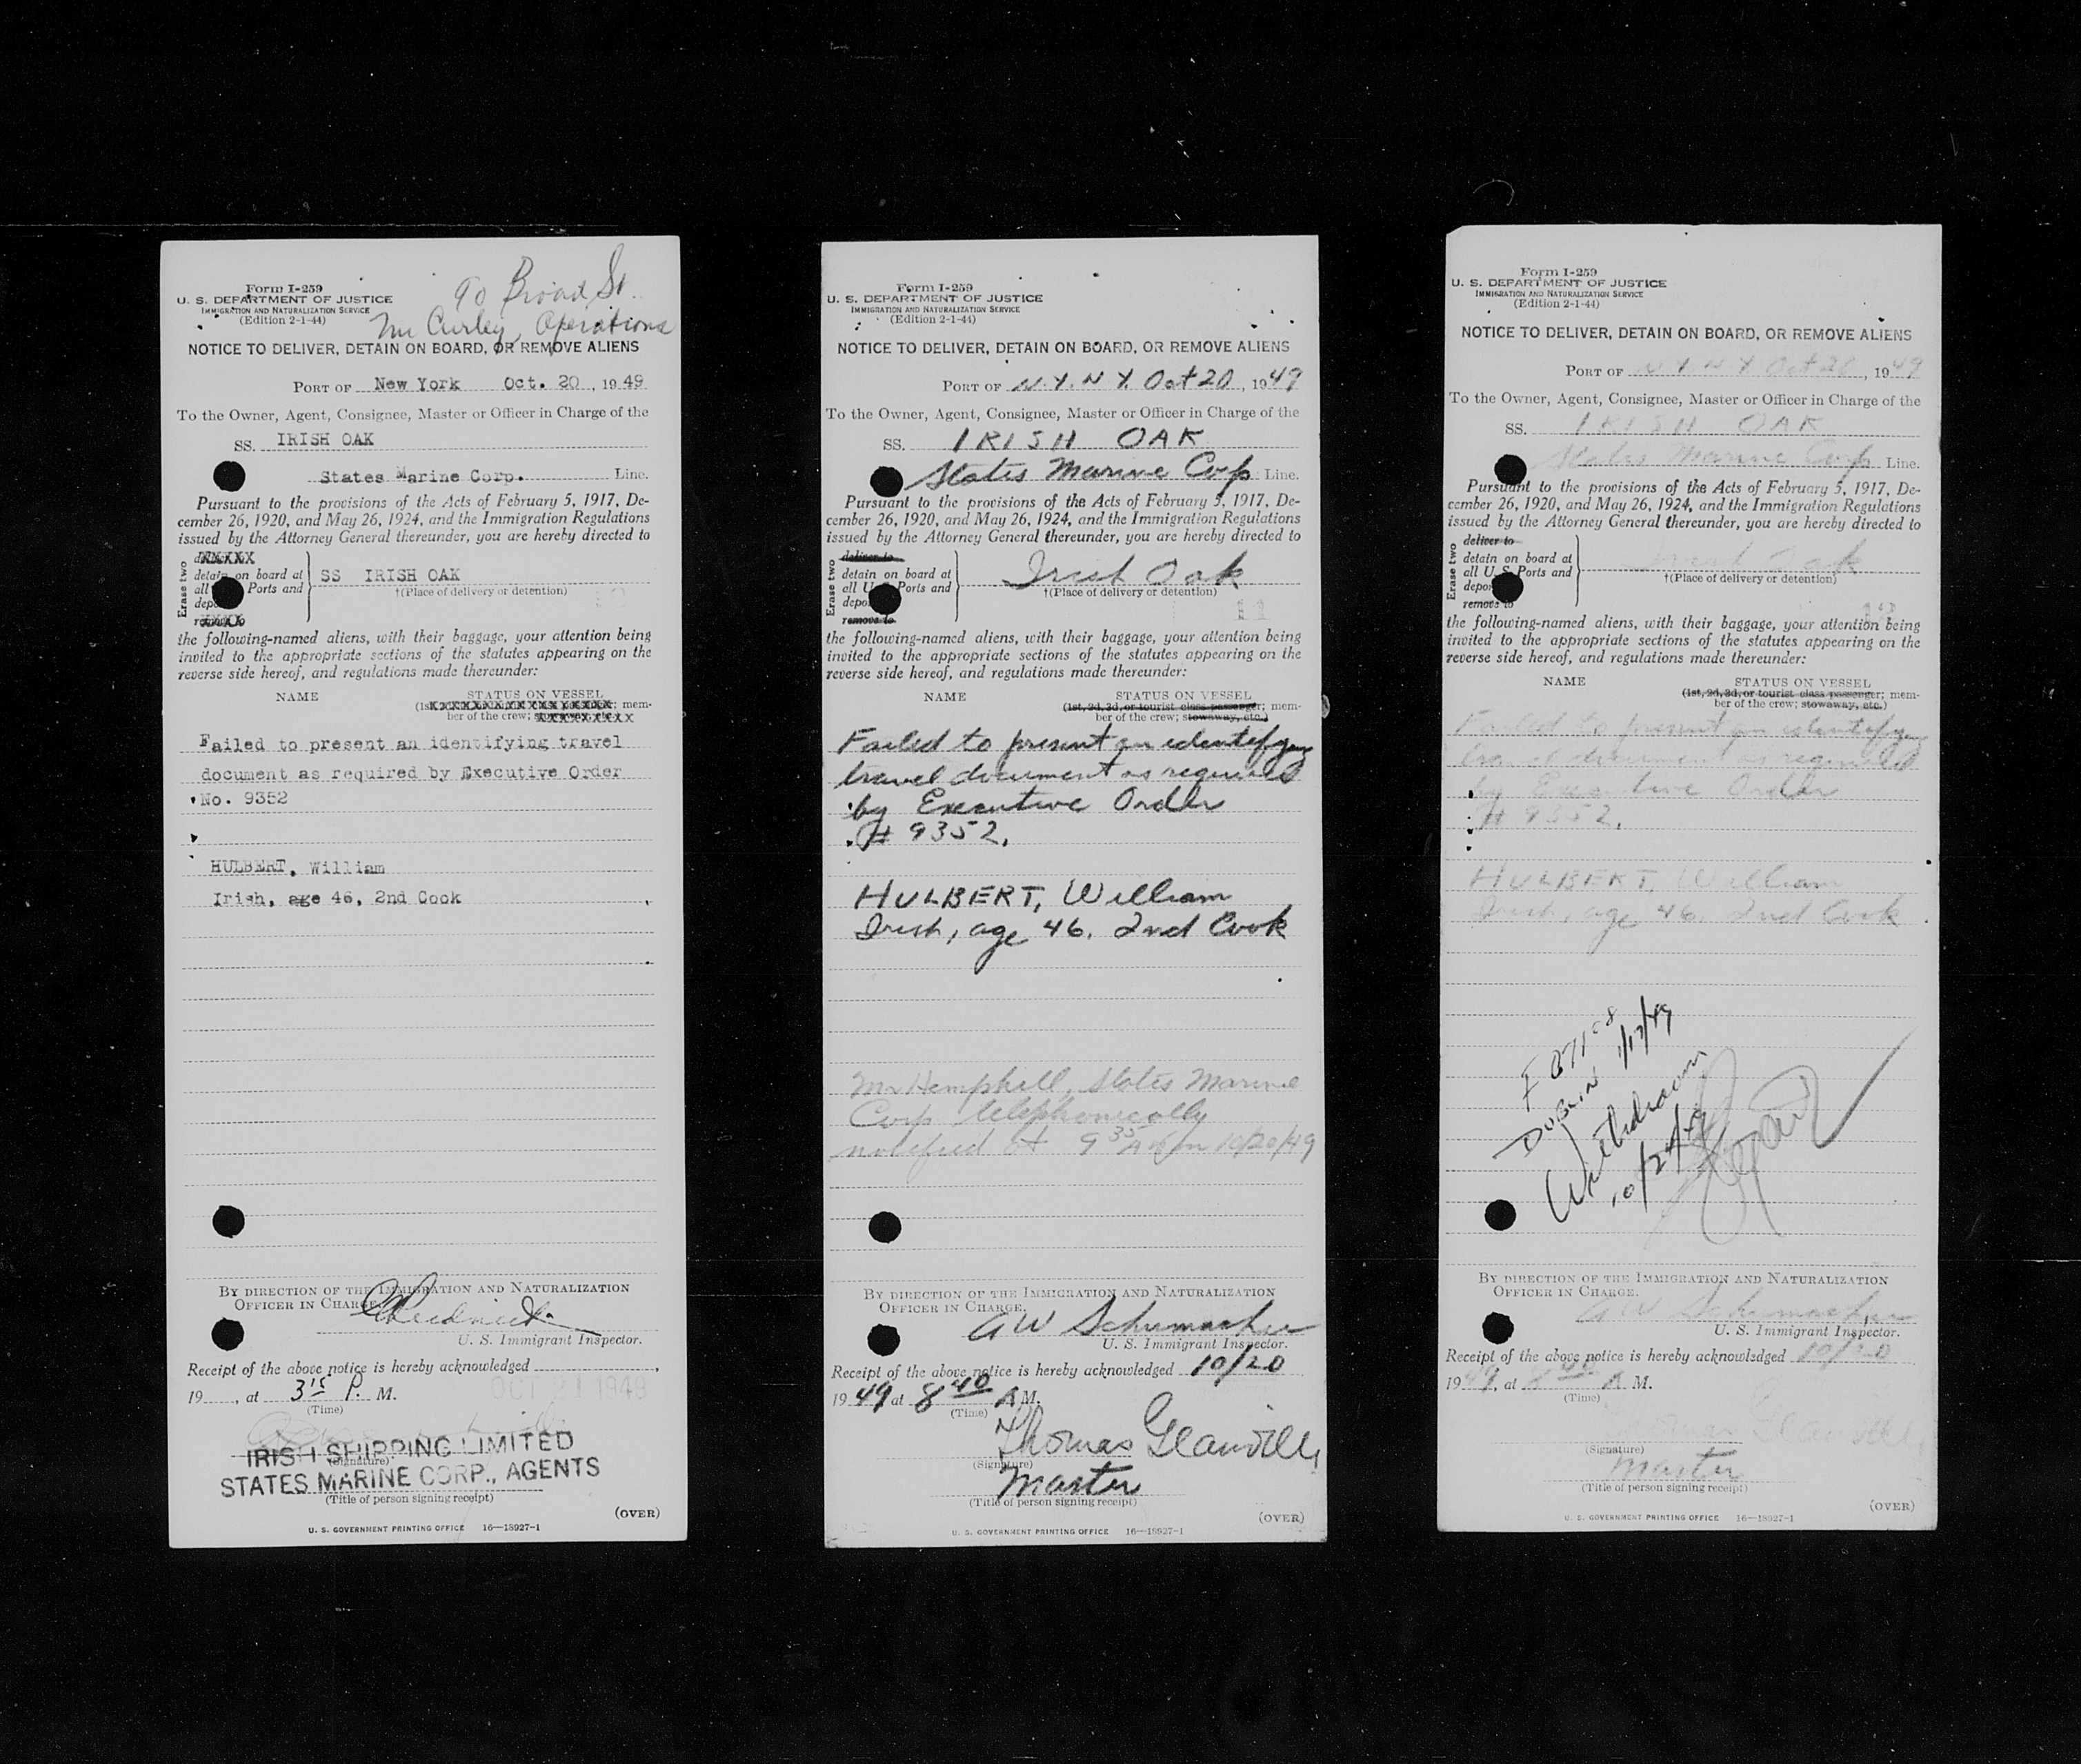 Form I-259
U. S. DEPARTMENT OF JUSTICE
IMMIGRATION AND NATURALIZATION SERVICE
(Edition 2-1-44)
90 Broad St.
Mr Curley, Operations
NOTICE TO DELIVER, DETAIN ON BOARD, OR REMOVE ALIENS
PORT OF New York Oct. 20, 1949
To the Owner, Agent, Consignee, Master or Officer in Charge of the
SS. IRISH OAK
States Marine Corp. Line.
Pursuant to the provisions of the Acts of February 5, 1917, De-
cember 26, 1920, and May 26, 1924, and the Immigration Regulations
issued by the Attorney General thereunder, you are hereby directed to
Erase two
detain on board at
all Ports and
SS IRISH OAK
†(Place of delivery or detention)
the following-named aliens, with their baggage, your attention being
invited to the appropriate sections of the statutes appearing on the
reverse side hereof, and regulations made thereunder:
NAME STATUS ON VESSEL
(1st XXXXXXXXXXXXXXXXXXX; mem-
ber of the crew; XXXXXXXXX
Failed to present an identifying travel
document as required by Executive Order
No. 9352
HULBERT, William
Irish, age 46, 2nd Cook
BY DIRECTION OF THE IMMIGRATION AND NATURALIZATION
OFFICER IN CHARGE.
U. S. Immigrant Inspector.
Receipt of the above notice is hereby acknowledged
OCT 21 1949
19 , at 3 15 P. M.
(Time)
IRISH SHIPPING LIMITED
(Signature)
STATES MARINE CORP., AGENTS
(Title of person signing receipt)
(OVER)
U. S. GOVERNMENT PRINTING OFFICE 16—18927-1
Form I-259
U. S. DEPARTMENT OF JUSTICE
IMMIGRATION AND NATURALIZATION SERVICE
(Edition 2-1-44)
NOTICE TO DELIVER, DETAIN ON BOARD, OR REMOVE ALIENS
PORT OF N.Y. N Y. Oct 20, 1949
To the Owner, Agent, Consignee, Master or Officer in Charge of the
SS. IRISH OAK
States Marine Corp Line.
Pursuant to the provisions of the Acts of February 5, 1917, De-
cember 26, 1920, and May 26, 1924, and the Immigration Regulations
issued by the Attorney General thereunder, you are hereby directed to
Erase two
deliver to
detain on board at
all U. S. Ports and
remove to
Irish Oak
†(Place of delivery or detention)
11
the following-named aliens, with their baggage, your attention being
invited to the appropriate sections of the statutes appearing on the
reverse side hereof, and regulations made thereunder:
NAME STATUS ON VESSEL
(1st, 2d, 3d, or tourist class passenger; mem-
ber of the crew; stowaway, etc.)
Failed to present an identifying
travel document as required
by Executive Order
# 9352.
HULBERT, William
Irish, age 46. 2nd Cook
Mr Hemphill, States Marine
Corp telephonically
notified at 9 35 AM on 10/20/49
BY DIRECTION OF THE IMMIGRATION AND NATURALIZATION
OFFICER IN CHARGE.
A W Schumacher
U. S. Immigrant Inspector.
Receipt of the above notice is hereby acknowledged 10/20
1949 at 8 40 A M.
(Time)
Thomas Glanville
(Signature)
Master
(Title of person signing receipt)
(OVER)
U. S. GOVERNMENT PRINTING OFFICE 16—18927-1
Form I-259
U. S. DEPARTMENT OF JUSTICE
IMMIGRATION AND NATURALIZATION SERVICE
(Edition 2-1-44)
NOTICE TO DELIVER, DETAIN ON BOARD, OR REMOVE ALIENS
PORT OF N Y. N Y Oct 20, 1949
To the Owner, Agent, Consignee, Master or Officer in Charge of the
SS. IRISH OAK
States Marine Corp Line.
Pursuant to the provisions of the Acts of February 5, 1917, De-
cember 26, 1920, and May 26, 1924, and the Immigration Regulations
issued by the Attorney General thereunder, you are hereby directed to
Erase two
deliver to
detain on board at
all U. S. Ports and
remove to
Irish Oak
†(Place of delivery or detention)
the following-named aliens, with their baggage, your attention being
invited to the appropriate sections of the statutes appearing on the
reverse side hereof, and regulations made thereunder:
NAME STATUS ON VESSEL
(1st, 2d, 3d, or tourist class passenger; mem-
ber of the crew; stowaway, etc.)
Failed to present an identifying
travel document as required
by Executive Order
# 9352.
HULBERT, William
Irish, age 46. 2nd Cook
DUBLIN 1/17/49
Withdrawn
10/24/49
BY DIRECTION OF THE IMMIGRATION AND NATURALIZATION
OFFICER IN CHARGE.
A W Schumacher
U. S. Immigrant Inspector.
Receipt of the above notice is hereby acknowledged 10/20
1949, at 8 40 A M.
(Time)
Thomas Glanville
(Signature)
Master
(Title of person signing receipt)
(OVER)
U. S. GOVERNMENT PRINTING OFFICE 16—18927-1